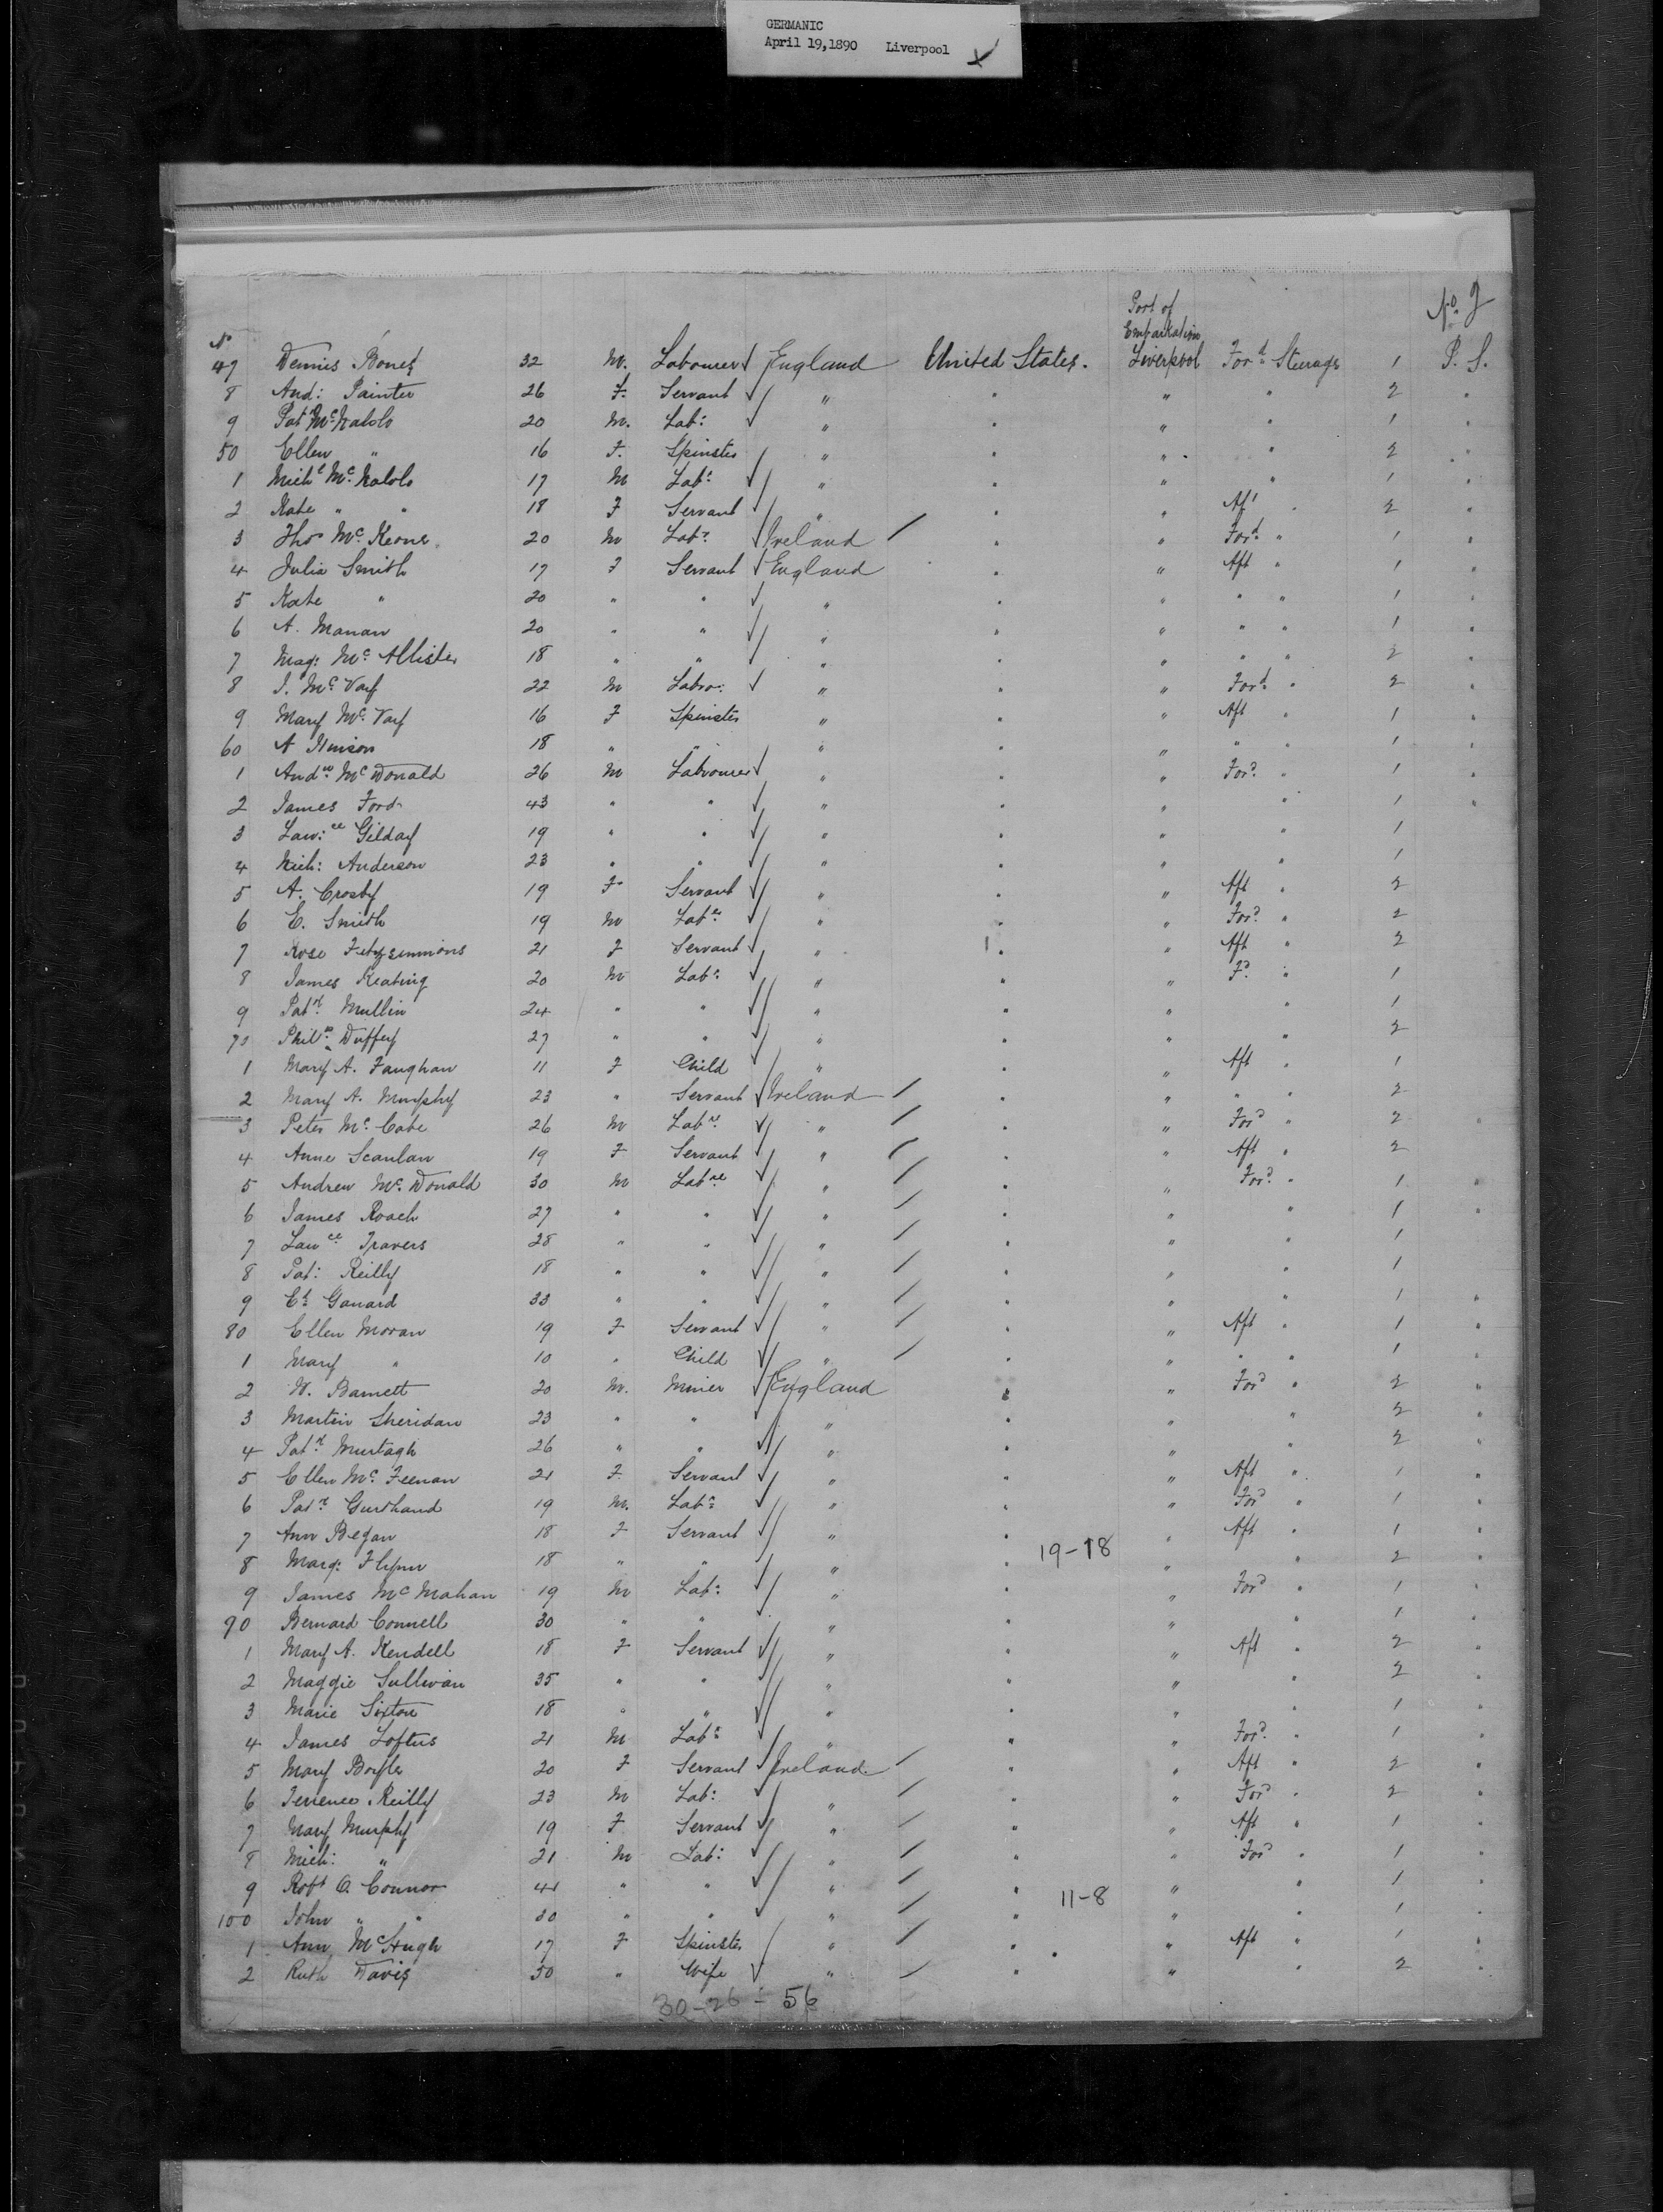 GERMANIC
April 19, 1890 Liverpool
No. 2
Port of
Embarkation
No
47 Dennis Bones 32 M. Labourer England United States. Liverpool Ford Steerage 1 P.S.
8 And: Painter 26 F. Servant " " " " 2 "
9 Pat McNabola 20 M. Lab: " " " " 1 "
50 Ellen " 16 F. Spinster " " " " 2 "
1 Michl McNabola 17 M Labr " " " " 1 "
2 Kate " " 18 F Servant " " " Aft " 2 "
3 Thos McKeone 20 M Labr Ireland " " Ford " 1 "
4 Julia Smith 17 F Servant England " " Aft " 1 "
5 Kate " 20 " " " " " " " 1 "
6 A. Manan 20 " " " " " " " 1 "
7 Mag: McAllister 18 " " " " " " " 2 "
8 J. McVay 22 M Labr: " " " Ford " 2 "
9 Mary McVay 16 F Spinster " " " Aft " 1 "
60 A 18 " " " " " " " 1 "
1 Andw McDonald 26 M Labourer " " " Ford " 1 "
2 James Ford 43 " " " " " " 1 "
3 Lawce Gilday 19 " " " " " " 1
4 Mich: Anderson 23 " " " " " " 1
5 A. Crosby 19 F Servant " " " Aft " 2
6 E. Smith 19 M Labr " " " Ford " 2
7 Rose Fetzsimmons 21 F Servant " " " Aft " 2
8 James Keating 20 M Labr " " " Fd " 1
9 Patk Mullin 24 " " " " " " 1
70 Philp Duffey 27 " " " " " " 2
1 Mary A. Faughan 11 F Child " " " Aft " 1
2 Mary A. Murphy 23 " Servant Ireland " " " " 2
3 Peter McCabe 26 M Labr " " " Ford " 2 "
4 Anne Scanlan 19 F Servant " " " Aft " 2
5 Andrew McDonald 30 M Labr " " " Ford " 1 "
6 James Roach 27 " " " " " " 1 "
7 Lawce Travers 28 " " " " " " 1
8 Pat: Reilly 18 " " " " " " 1
9 Ganard 33 " " " " " " 1 "
80 Ellen Moran 19 F Servant " " " Aft " 1 "
1 Mary " 10 " Child " " " " " 1 "
2 W. Barnett 20 M. Miner England " " Ford " 2 "
3 Martin Sheridan 23 " " " " " " 2 "
4 Patk Murtagh 26 " " " " " " 2 "
5 Ellen McFeenan 21 F Servant " " " Aft " 1 "
6 Patk 19 M. Labr " " " Ford " 1 "
7 Ann Began 18 F Servant " " " Aft " 1 "
8 Marg: Flynn 18 " " " " 19-18 " " 2 "
9 James McMahan 19 M Lab: " " " Ford " 1 "
90 Bernard Connell 30 " " " " " " 1 "
1 Mary A. Kendell 18 F Servant " " " Aft " 2 "
2 Maggie Sullivan 35 " " " " " " 2 "
3 Marie Sixton 18 " " " " " " 1 "
4 James Loftus 21 M Labr " " " Ford " 1 "
5 Mary Boyle 20 F Servant Ireland " " Aft " 2 "
6 Terrence Reilly 23 M Lab: " " " Ford " 2 "
7 Mary Murphy 19 F Servant " " " Aft " 1 "
8 Mich: " 21 M Lab: " " " Ford " 1 "
9 Robt O. Connor 41 " " " " 11-8 " " 1 "
100 John " " 30 " " " " " " 1 "
1 Ann McHugh 17 F Spinster " " " Aft " 1 "
2 Ruth Davis 50 " Wife " " " " 2 "
30-26-56